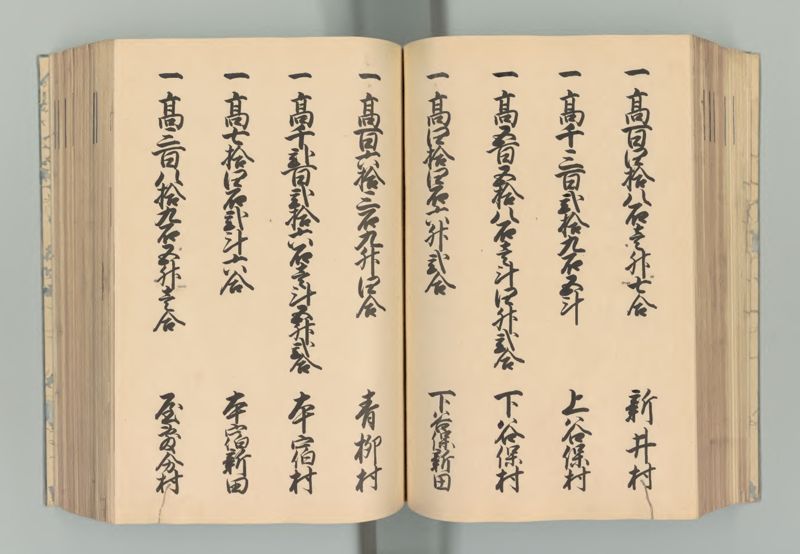 一 高百四拾八石壱升七合 新井村
一 高千三百弐拾九石五斗 上谷保村
一 高五百五拾八石壱斗四升弐合 下谷保村
一 高四拾四石六升弐合 下谷保新田
一 高百六拾三石九升四合 青柳村
一 高千弐百弐拾六石壱斗五升弐合 本宿村
一 高七拾四石弐斗六合 本宿新田
一 高三百八拾九石五升壱合 屋敷分村